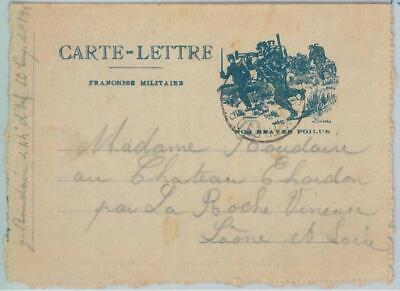 CARTE-LETTRE
FRANCHISE MILITAIRE
NOS BRAVES POILUS
Madame Roudaire
au Chateau Chardon
par La Roche Vineuse
Saône et Loire
Roudaire